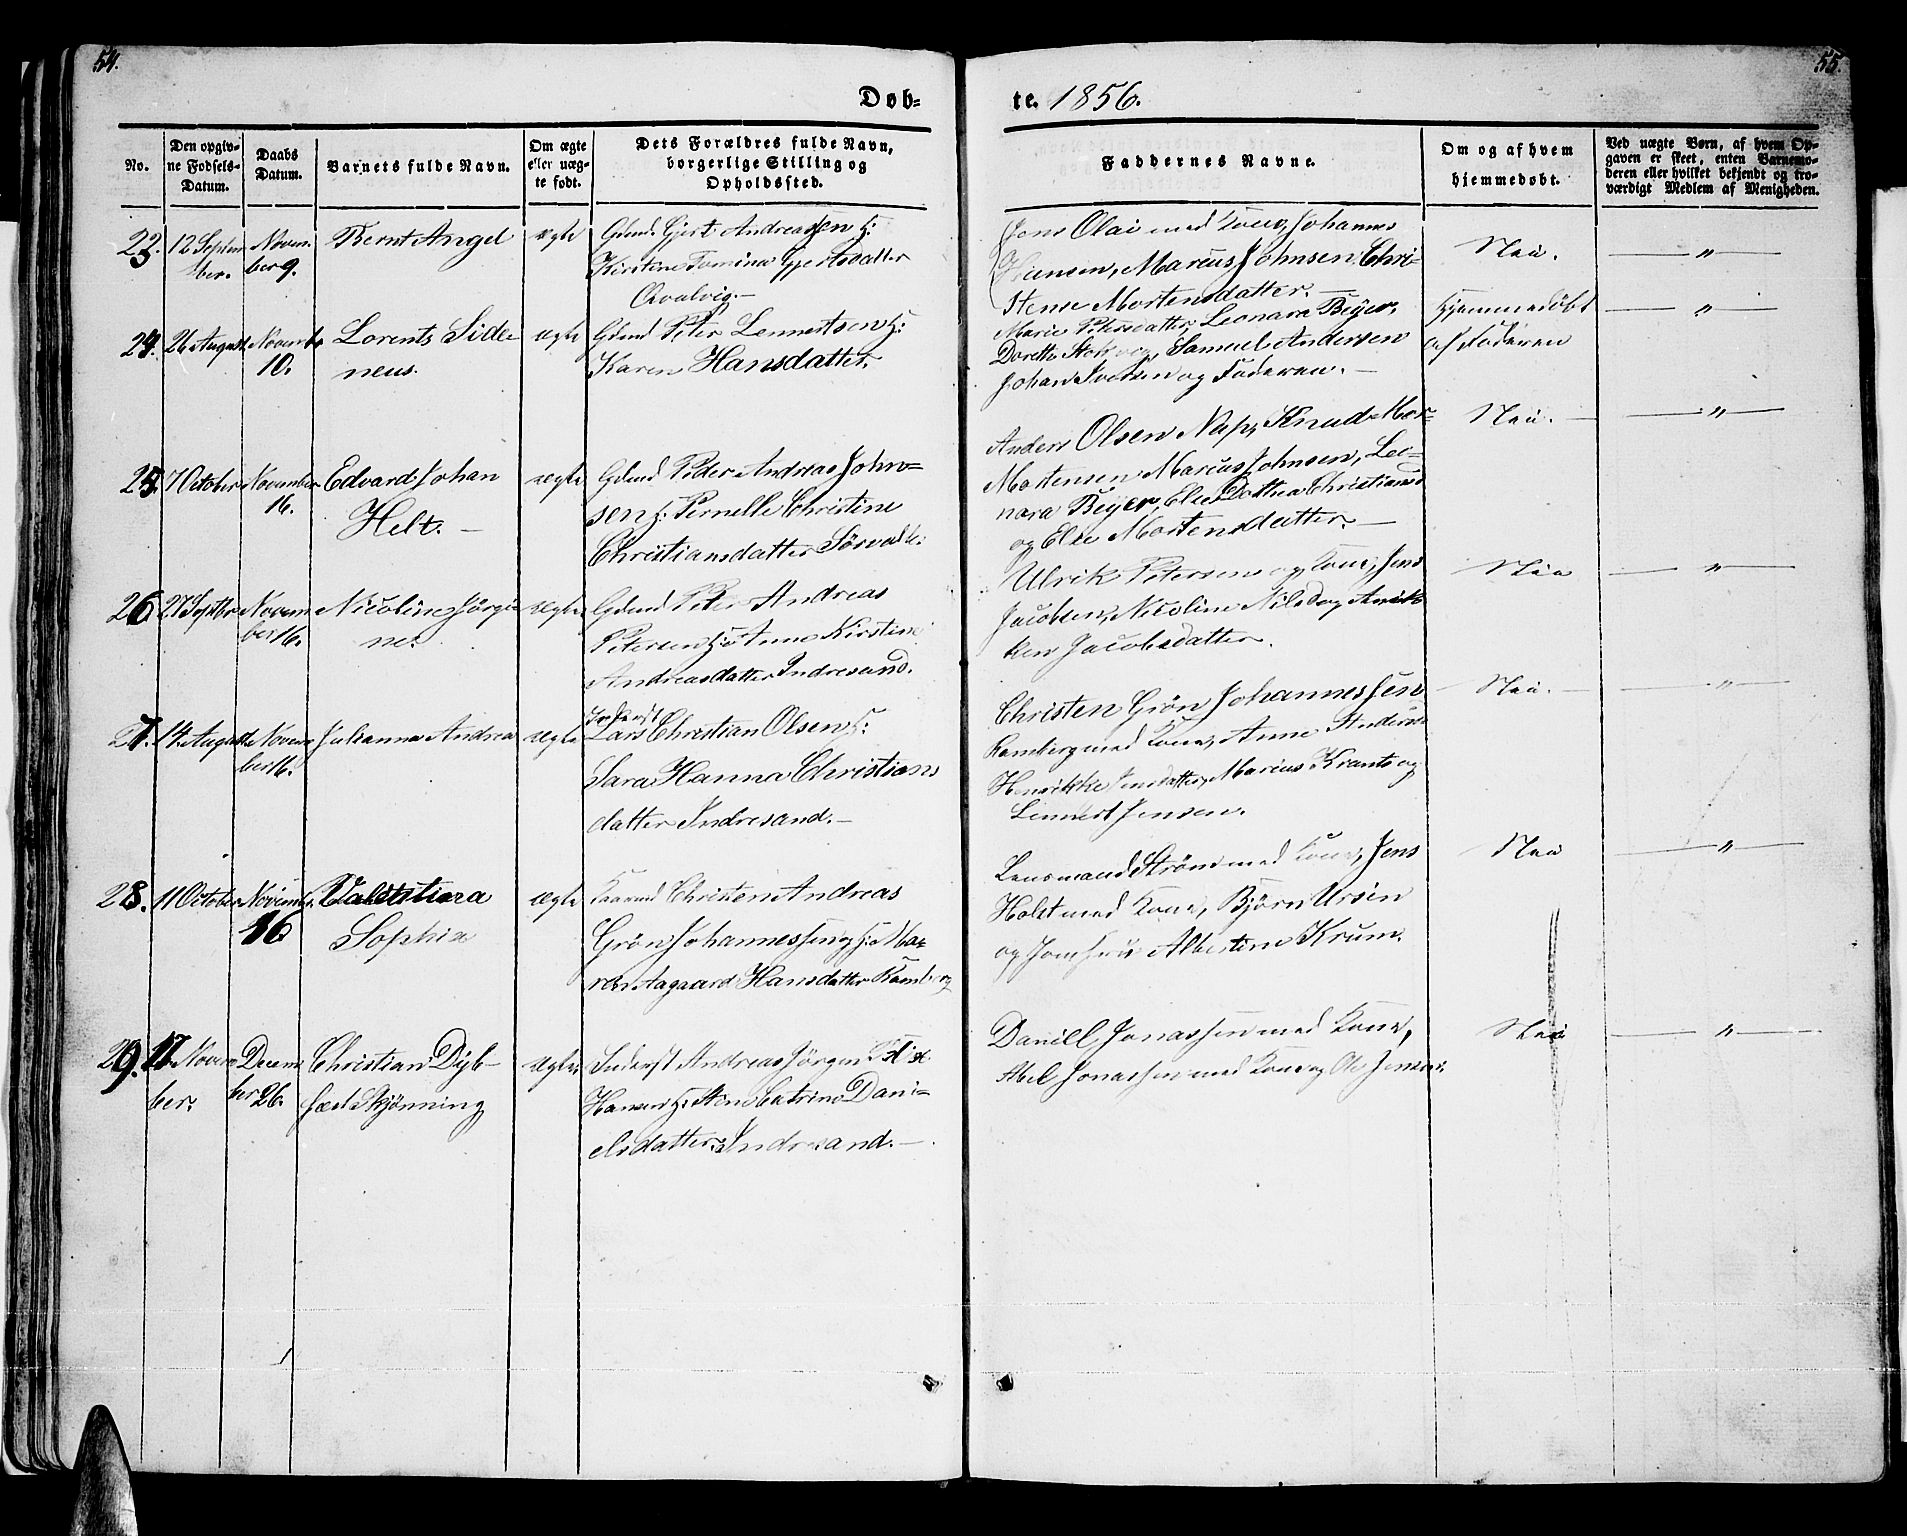 54.
55.
Døb-
te. 1856.
No.
Den opgiv-
ne Fødsels-
Datum.
Daabs
Datum.
Barnets fulde Navn.
Om ægte
eller uæg-
te født.
Dets Forældres fulde Navn,
borgerlige Stilling og
Opholdssted.
Faddernes Navne.
Om og af hvem
hjemmedøbt.
Ved uægte Børn, af hvem Op-
gaven er skeet, enten Barnemo-
deren eller hvilket bekjendt og tro-
værdigt Medlem af Menigheden.
23. 12 Septem
ber.
Novem
ber 9.
Bernt Angel
ægte
Gdmd Gjert Andreassen H:
Kirstene Tomina Gjertsdatter
Qvalvig.—
Jens Olai med Kone, Johannes
Hansen, Marcus Johnsen, Chri-
stense Mortensdatter.—
Nei.
— " —
24. 26 August
Novemb.
10.
Lorents Side-
neus.
ægte
Gdmd Peter Lennertsen H:
Karen Hansdatter.
Marie Petersdatter, Leonara Beyer,
Dorethe, Samuel Andersen
Johan Iversen og Faderen.—
Hjemmedøbt
af Faderen
— " —
25. 7 October
November
16.
Edvard Johan
Helt.—
ægte
Gdmd Peder Andreas John-
sen H: Pernelle Christine
Christiansdatter Sörvaa
Anders Olsen Nap, Knud Mor-
Mortensen Marcus Johnsen, Leo-
nara Beyer, Else Dorthea Christiansd
og Else Mortensdatter.—
Nei.—
— " —
26. 27 Septbr
Novem
ber 16.
Nicoline Jörgi-
ne.
ægte
Gdmd Peter Andreas
Petersen H: Anne Kirstine
Andreasdatter Indresand.
Ulrik Petersen og Kone, Jens
Jacobsen, Nicoline Nilsd og Anik-
ken Jacobsdatter.
Nei
— " —
27. 14 August
Novem
ber 16.
Julianna Andrea
ægte
Inderst
Lars Christian Olsen H:
Sara Hanna Christians
datter Indresand.—
Christen Grön Johannessen
Ramberg med Kone, Anne Andersd
Henrikke Jensdatter, Marius Krants og
Lennert Jensen.
Nei.—
— " —
28. 11 October
Novembr.
16
Sophia
ægte
Christen Andreas
Grön Johannessen H: Ma-
ren Aagaard Hansdatter Ramberg
Lensmand Ström med Kone, Jens
Holst med Kone, Björn Ursin
og Jomfrue Albertine Krum.
Nei
— " —
29. 17 Novem
ber.
Decem
ber 26.
Christian Dyb-
fæst Skjönning
ægte
Inderst Andreas Jörgen
Hansen H: Stene Catrine Dani-
elsdatter Indresand.—
Daniell Jonassen med Kone,
Abel Jonassen med Kone og Ole Jensen.
Nei
— " —